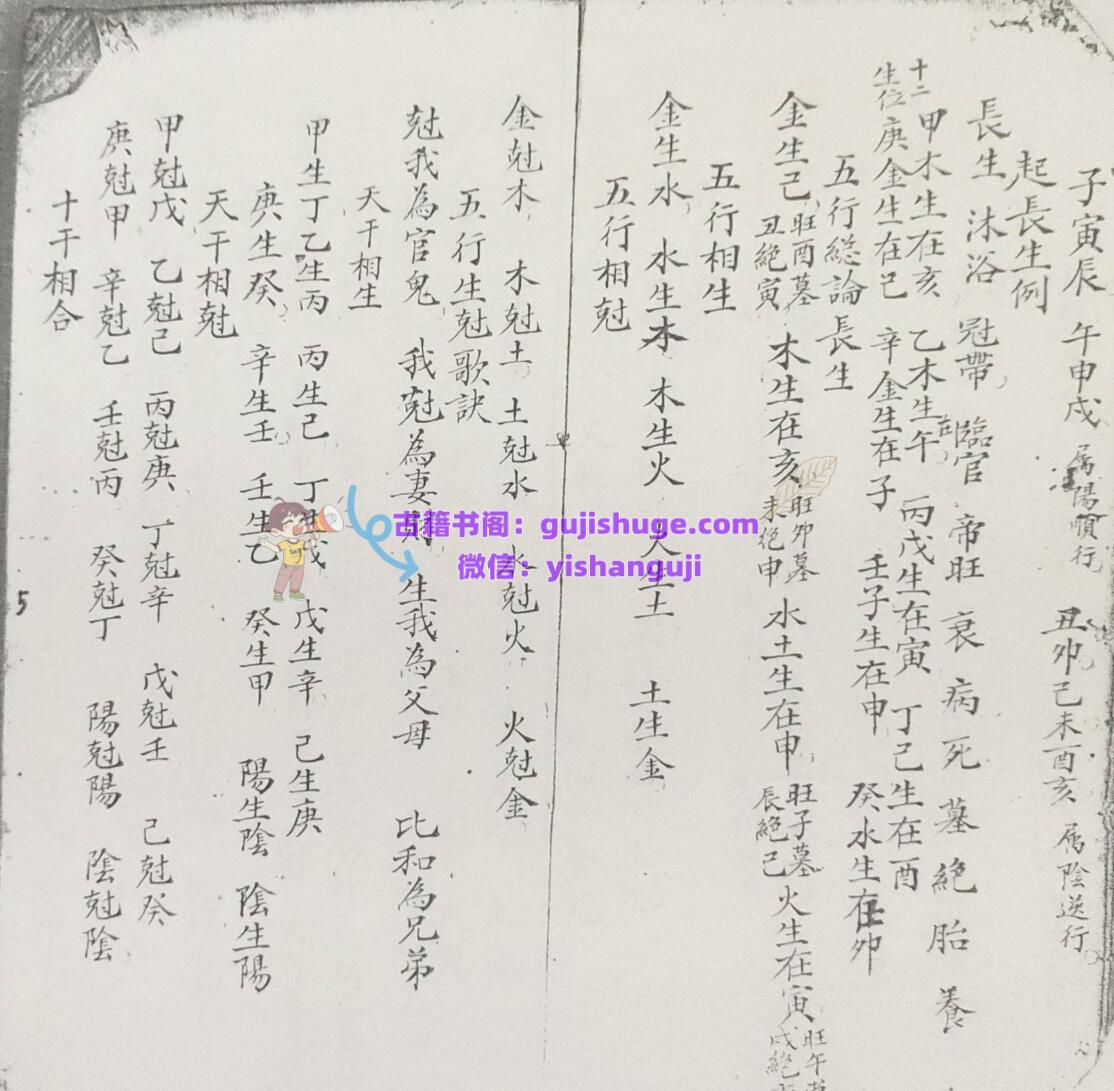 子寅辰 午申戌 属陽順行 丑卯己未酉亥 属陰逆行
起長生例
長生 沐浴 冠帶 臨官 帝旺 衰 病 死 墓 絕 胎 養
十二生位
甲木生在亥 乙木生午 丙戊生在寅 丁己生在酉
庚金生在巳 辛金生在子 壬子生在申 癸水生在卯
五行総論長生
金生己 旺酉墓丑絕寅 木生在亥 旺卯墓未绝申 水土生在申 旺子墓辰絕己 火生在寅 旺午墓戌絕
五行相生
金生水 水生木 木生火 火生土 土生金
五行相尅
金尅木 木尅土 土尅水 水尅火 火尅金
五行生尅歌訣
尅我為官鬼 我尅為妻財 生我為父母 比和為兄弟
天干相生
甲生丁 乙生丙 丙生己 丁生戊 戊生辛 己生庚
庚生癸 辛生壬 壬生乙 癸生甲 陽生陰 陰生陽
天干相尅
甲尅戊 乙尅己 丙尅庚 丁尅辛 戊尅壬 己尅癸
庚尅甲 辛尅乙 壬尅丙 癸尅丁 陽尅陽 陰尅陰
十干相合
5
古籍书阁：gujishuge.com
微信：yishanguji